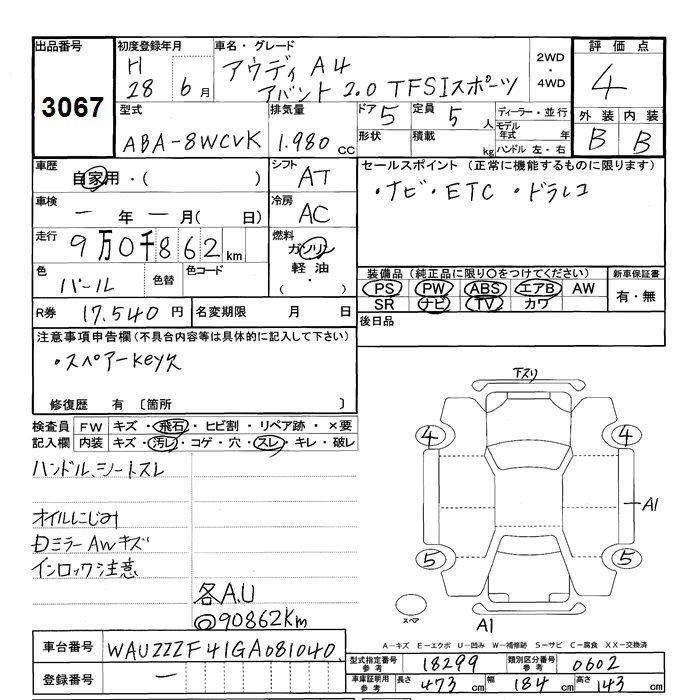 出品番号
3067
初度登録年月
H
28 6月
車名・グレード
アウディ A4
アバント 2.0 TFSIスポーツ
2WD
・
4WD
評価点
4
外装 内装
B B
型式
ABA-8WCVK
排気量
1.980 cc
ドア 5
定員 5人
ディーラー・並行
モデル年式 年
形状
積載 kg
ハンドル 左・右
車歴
自家用・( )
シフト
AT
セールスポイント (正常に機能するものに限ります)
・ナビ・ETC ・ドラレコ
車検
一 年 一 月( 日)
冷房
AC
走行
9万0千862km
燃料
ガソリン
軽油
( ・ )
色
パール
色替
色コード
装備品 (純正品に限り○をつけてください)
PS PW ABS エアB AW
SR ナビ TV カワ
新車保証書
有・無
R券 17.540 円
名変期限 月 日
後日品
注意事項申告欄 (不具合内容等は具体的に記入して下さい)
・スペアーkey欠
修復歴 有 〔箇所 〕
検査員記入欄
FW キズ・飛石・ヒビ割・リペア跡・×要
内装 キズ・汚レ・コゲ・穴・スレ・キレ・破レ
ハンドル、シートスレ
オイルにじみ
Dミラー Awキズ
インロック注意
各A.U
@90862Km
下スリ
4 4
A1
5 5
スペア
A1
A-キズ E-エクボ U-凹み W-補修跡 S-サビ C-腐食 XX-交換済
車台番号 WAUZZZF41GA081040
登録番号 一
型式指定番号 参考 18299
類別区分番号 参考 0602
車庫証明用 参考 長さ 473 cm 幅 184 cm 高さ 143 cm